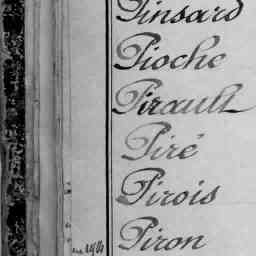 Pinsard
Pioche
Pirault
Piré
Pirois
Piron